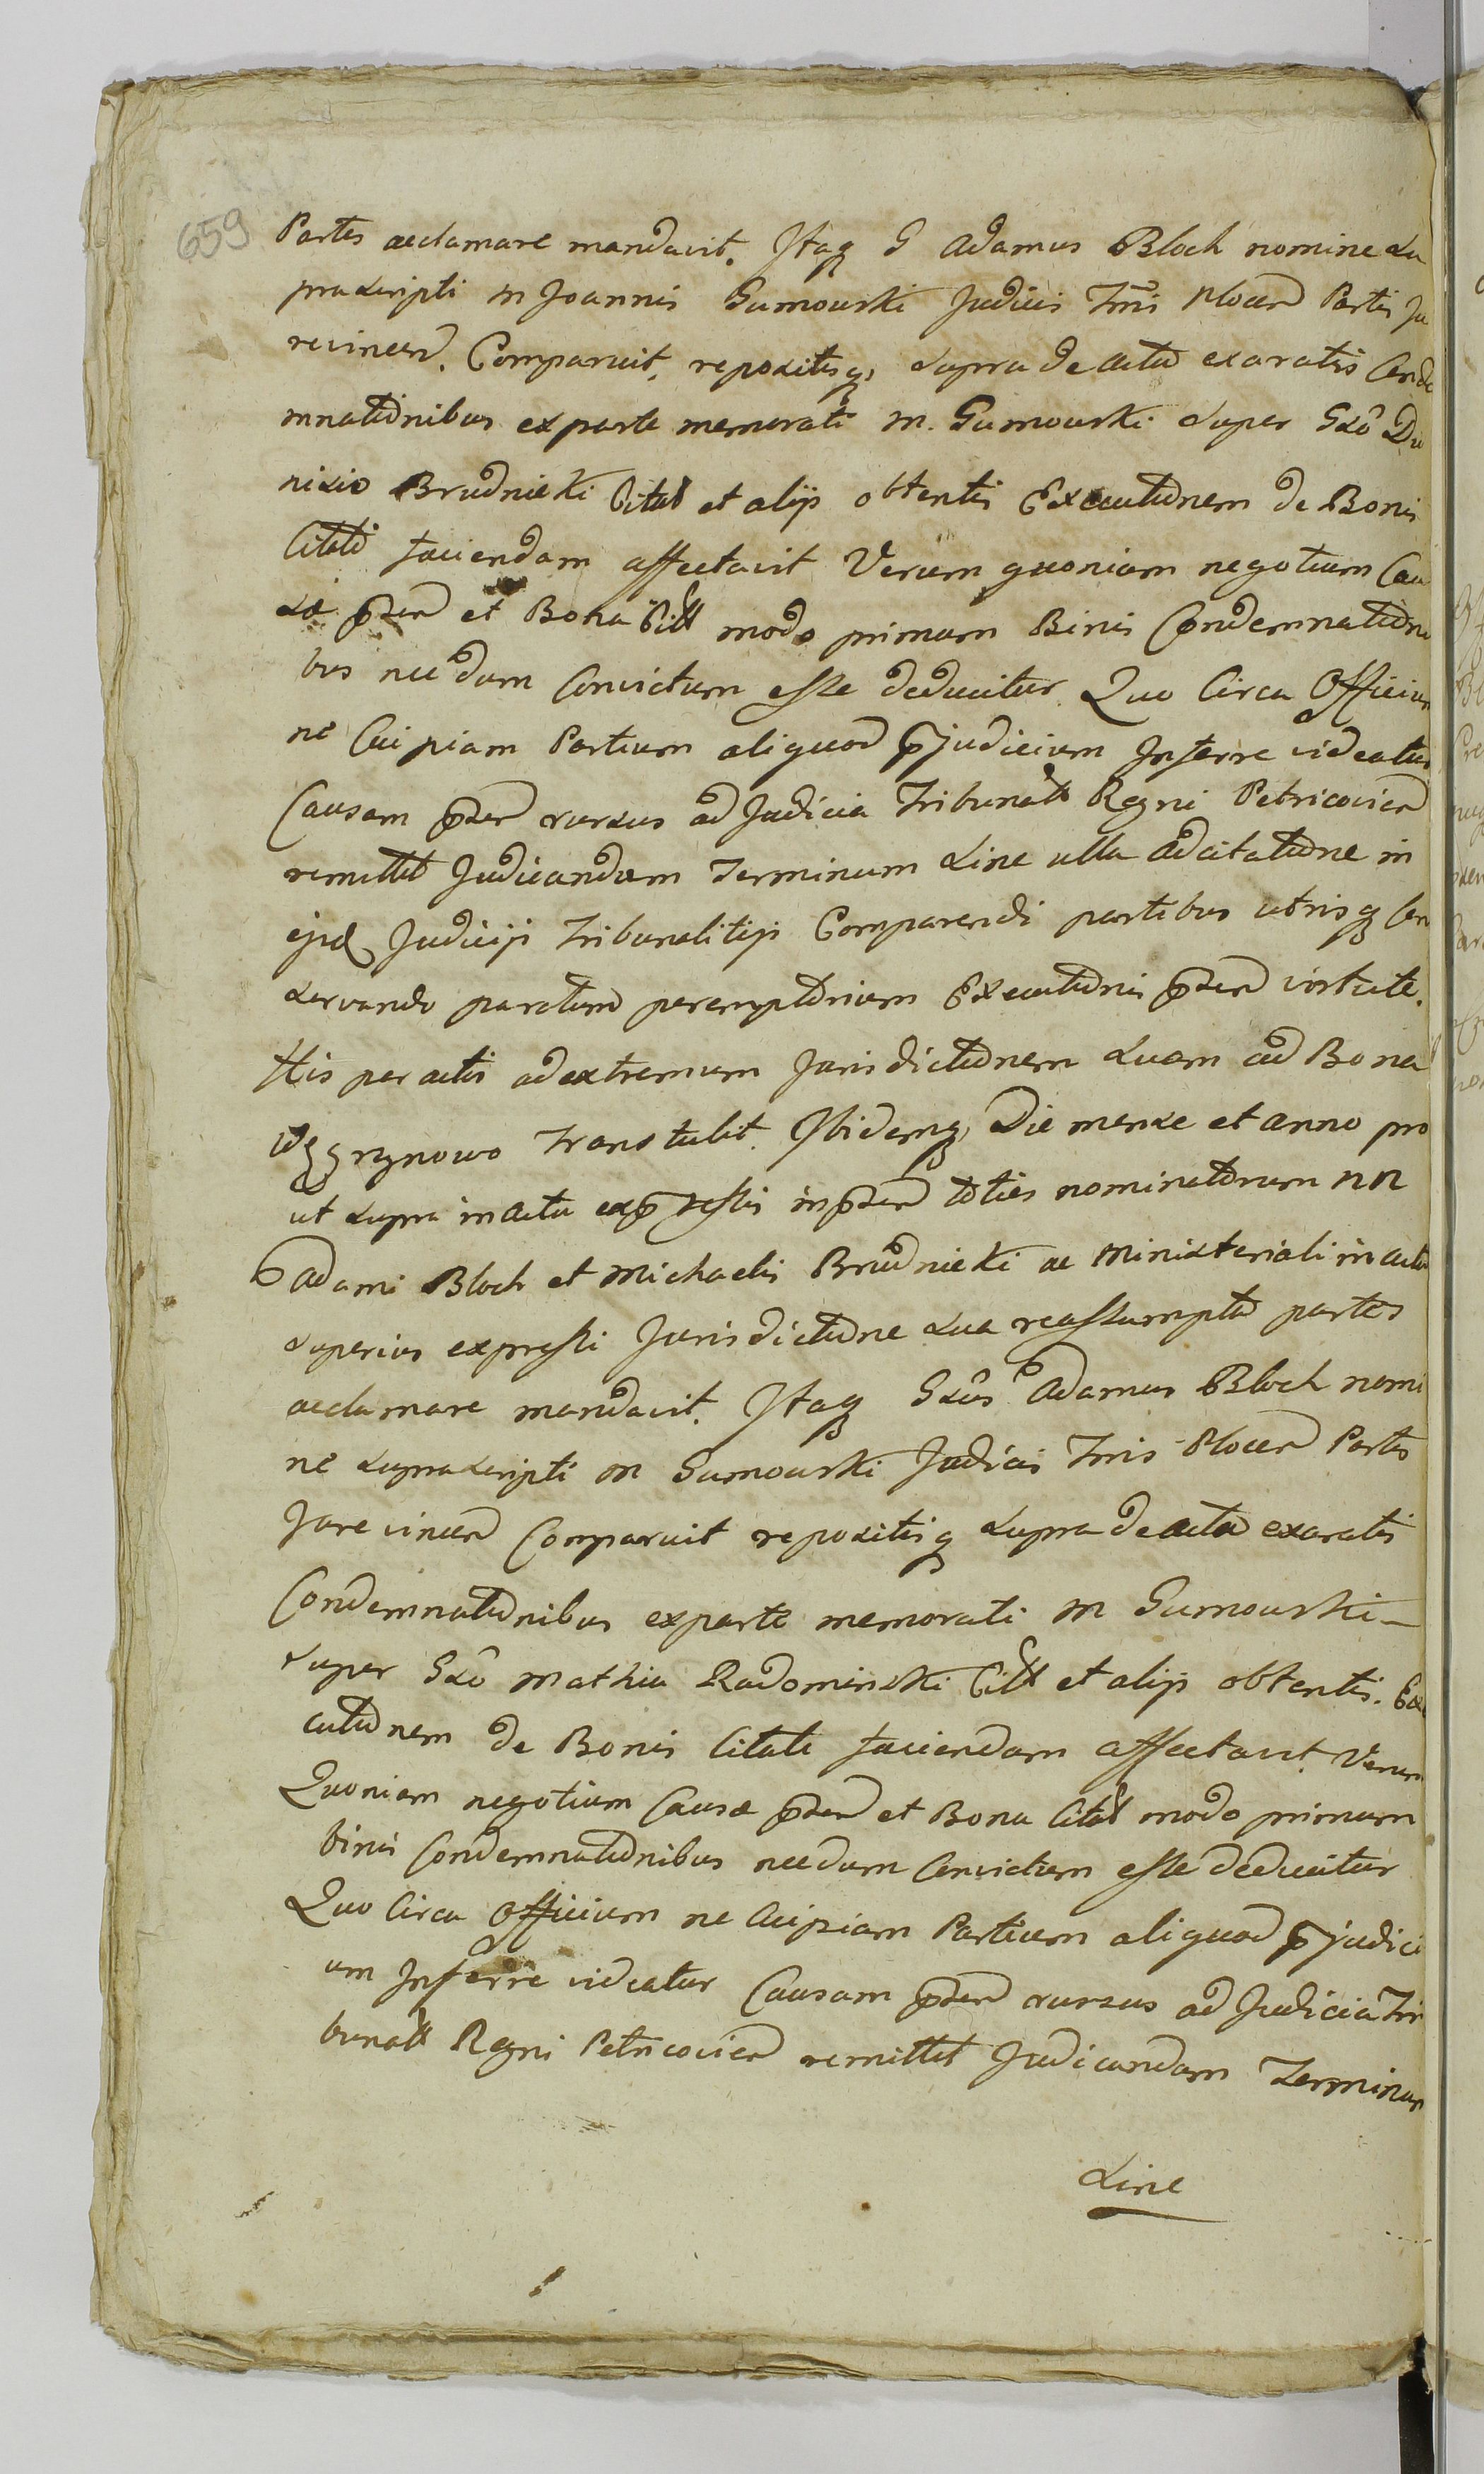 659
Partes acclamare mandavit. Itaq G Adamus Bloch nomine su
prascripti M Joannis Gumowski Judicis Trris Plocen Partis Ju
revincen. Comparuit, repositisq supra de actu exaratis Conde
mnationibus ex parte memorati M. Gumowski super Gso Dio
nisio Brudnicki Citat et alys obtentis Executionem de Bonis
Citati faciendam affectavit Verum quoniam negotium Cau
sæ pnsen et Bona Citt modo primum Binis Condemnationi
bus necdum Convictum esse deducitur Quo Circa Officium
ne Cuipiam Partium aliquod pjudicium Inferre videatur
Causam pnsen rursus ad Judicia Tribunatt Regni Petricovien
remittit Judicandam Terminum sine ulla adcitatione in
ejusd Judicijs Tribunalitijs Comparendi partibus utrisq con
servando paratum peremptorium Executionis pnsen virtute.
His peractis ad extremum Jurisdictionem suam ad Bona
Węgrzynowo transtulit. Ibidemq Die mense et anno pro
ut supra in actu expressis in pnsen toties nominatorum NN
Adami Bloch et Michaelis Brudnicki ac Ministeriali in actu
superius expressi Jurisdictione sua reassumpta partes
acclamare mandavit. Itaq Gsus Adamus Bloch nomi
ne suprascripti M Gumowski Judicis Trris Plocen Partis
Jure vincen Comparuit repositisq supra de actu exaratis
Condemnationibus ex parte memorati M Gumowski
super Gso Mathia Radominski Citt et alijs obtentis. Exe
cutionem de Bonis Citati faciendam affectavit. Verum
Quoniam negotium Causæ pnsen et Bona Citat modo primum
binis Condemnationibus necdum Convictum esse deducitur
Quo Circa Officium ne Cuipiam Partium aliquod pjudici
um Inferre videatur Causam pnsen rursus ad Judicia Tri
bunatt Regni Petricovien remittit Judicandam Terminum
sine